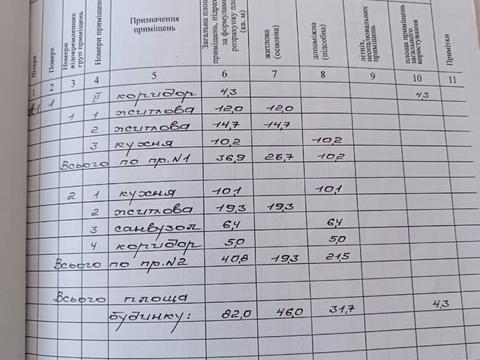 Літера
Поверх
Номери відокремлених груп приміщень
Номери приміщень
Призначення приміщень
Загальна площа приміщень, підрахо за формулами розрахунку площ (кв. м)
житлова (основна)
допоміжна (підсобна)
літніх, неопалювальних приміщень
площа приміщень загального користування
Примітки
1 2 3 4 5 6 7 8 9 10 11
1 ІІ коридор 4,3 4,3
1 1 житлова 12,0 12,0
2 житлова 14,7 14,7
3 кухня 10,2 10,2
Всього по пр.N1 36,9 26,7 10,2
2 1 кухня 10,1 10,1
2 житлова 19,3 19,3
3 санвузол 6,4 6,4
4 коридор 5,0 5,0
Всього по пр.N2 40,8 19,3 21,5
Всього площа
будинку: 82,0 46,0 31,7 4,3